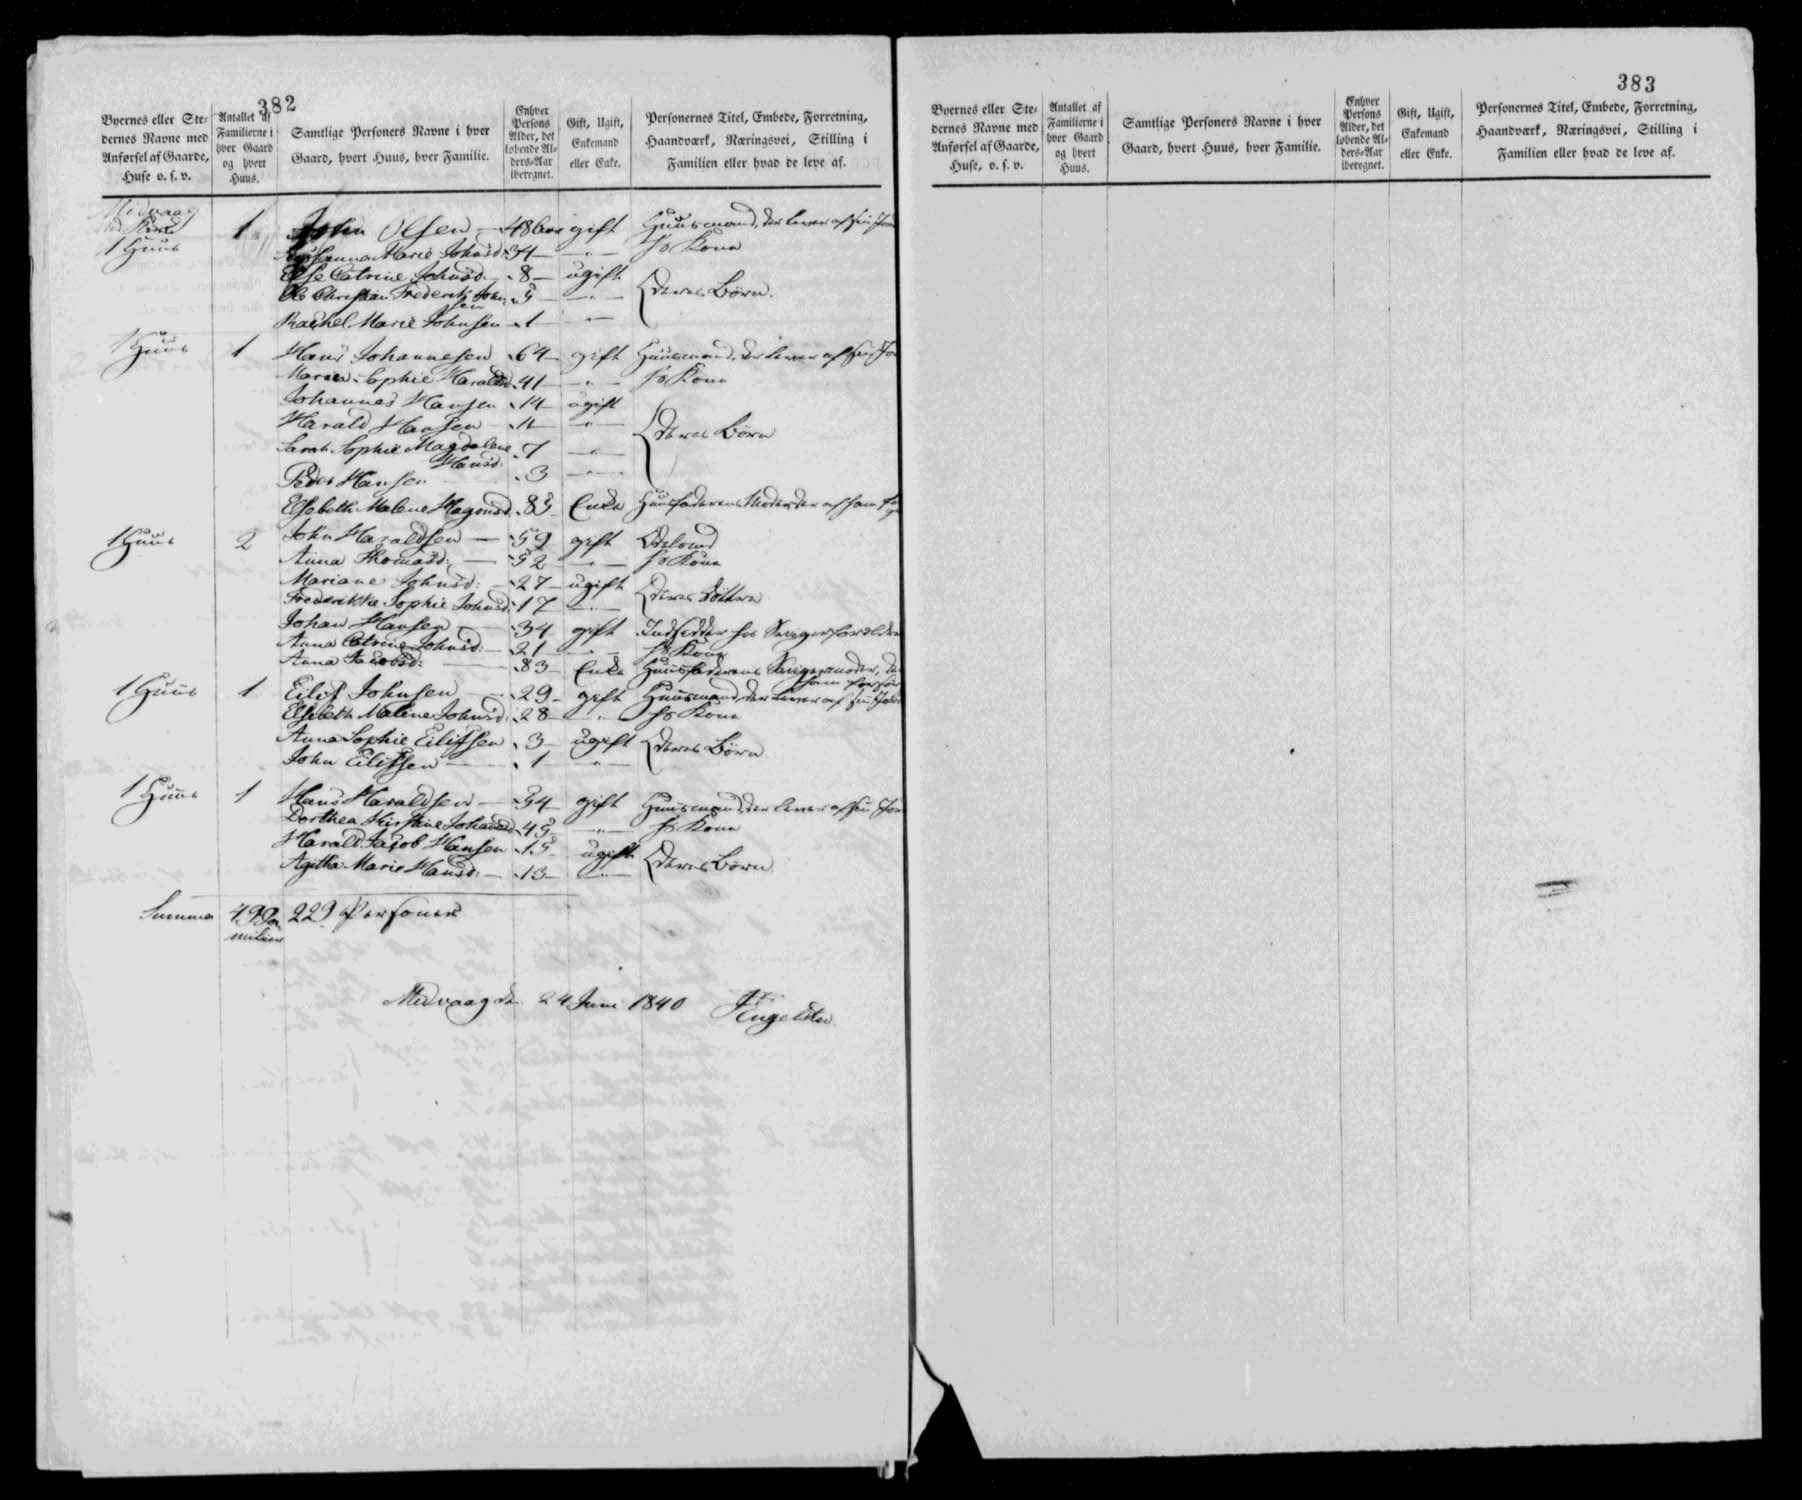 382
Byernes eller Ste-
dernes Navne med
Anførsel af Gaarde,
Huse o. s. v.
Antallet af
Familierne i
hver Gaard
og hvert
Huus.
Samtlige Personers Navne i hver
Gaard, hvert Huus, hver Familie.
Enhver
Persons
Alder, det
løbende Al-
ders-Aar
iberegnet.
Gift, Ugift,
Enkemand
eller Enke.
Personernes Titel, Embede, Forretning,
Haandværk, Næringsvei, Stilling i
Familien eller hvad de leve af.
Midvaag
1 Huus 1 John Olsen 48 Aar gift Huusmand, der lever af sin Jord
Marie Johnsd: 34 — " — hs Kone
Else Catrine Johnsd. 8 ugift
Ole Christian Frederik John- 5 — " — deres Børn.
sen
Rachel Marie Johnsen 1 — " —
1 Huus 1 Hans Johannesen 64 gift Huusmand, der lever af sin
Maren Sophie Haraldsd 41 — " — hs Kone
Johannes Hansen 14 ugift
Harald Hansen 11 — " — deres Børn
Sarah Sophie Magdalene 7 — " —
Hansd:
Peder Hansen 3 — " —
Elsebeth Malene Magnusd. 83 Enke Huusfaderens Moder der af ham
1 Huus 2 John Haraldsen 59 gift
Anna Thomasd: 52 — " — hs Kone
Mariane Johnsd: 27 ugift
Frederikke Sophie Johnsd: 17 — " — deres Døttre
Johan Hansen 34 gift Indsidder hos Svigerforældrene
Anna Catrine Johnsd: 21 — " — hs Kone
Anna Jacobsd: 83 Enke Huusfaderens Svigermoder,
1 Huus 1 Eilif Johnsen 29 gift Huusmand, der lever af sin Jord
Elsebeth Malene Johnsd: 28 — " — hs Kone
Anna Sophie Eilifsen 3 ugift deres Børn
John Eilifsen 1 — " —
1 Huus 1 Hans Haraldsen 54 gift Huusmand, der lever af sin
Dorthea Kirstine Johannesd 45 — " — hs Kone
Harald Jacob Hansen 15 ugift
Agitha Marie Hansd: 13 — " — deres Børn
Summa 49 Fa 229 Personer
milier
Midvaag d. 24 Juni 1840 Engelsted
383
Byernes eller Ste-
dernes Navne med
Anførsel af Gaarde,
Huse, o. s. v.
Antallet af
Familierne i
hver Gaard
og hvert
Huus.
Samtlige Personers Navne i hver
Gaard, hvert Huus, hver Familie.
Enhver
Persons
Alder, det
løbende Al-
ders-Aar
iberegnet.
Gift, Ugift,
Enkemand
eller Enke.
Personernes Titel, Embede, Forretning,
Haandværk, Næringsvei, Stilling i
Familien eller hvad de leve af.